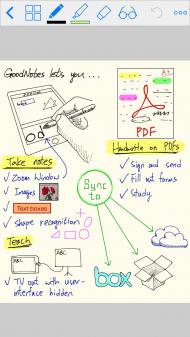 GoodNotes lets you ...
A+
PDF
Take notes
✓ Zoom Window
✓ Images
✓ Text boxes
✓ shape recognition
Handwrite on PDFs
✓ Sign and send
✓ Fill out forms
✓ Study
Sync to
Teach
ABC
ABC
✓ TV out with user-
interface hidden
box